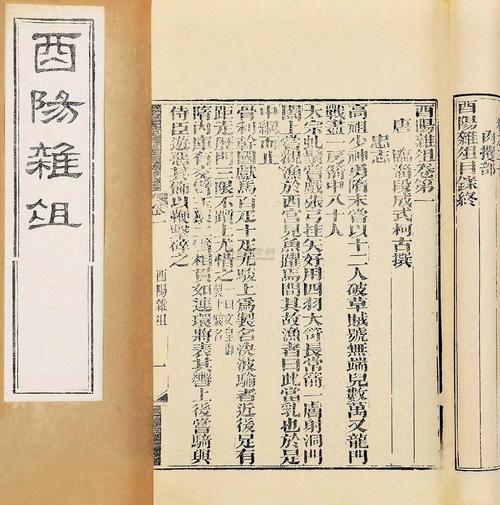 酉陽雜俎
肉攫部
酉陽雜俎目錄終
酉陽雜俎卷第一
唐 臨淄段成式柯古撰
忠志
高祖少神勇隋末嘗以十二人破草賊號無端兒數萬又龍門
戰盡一房箭中八十人
太宗虬鬚嘗戲張弓挂矢好用四羽大笴長常箭一膚射洞門
闔上嘗觀漁於西宮見魚躍焉問其故漁者曰此當乳也於是
中網而止
骨利幹國獻馬百疋十疋尤駿上爲製名決波騟者近後足有
距走歷門三限不躓上尤惜之 一曰文皇
隋內庫有交臂玉猿二臂相貫如連環將表其轡上後嘗騎與
侍臣遊惡其飾以鞭擊碎之
卷一
酉陽雜俎
一